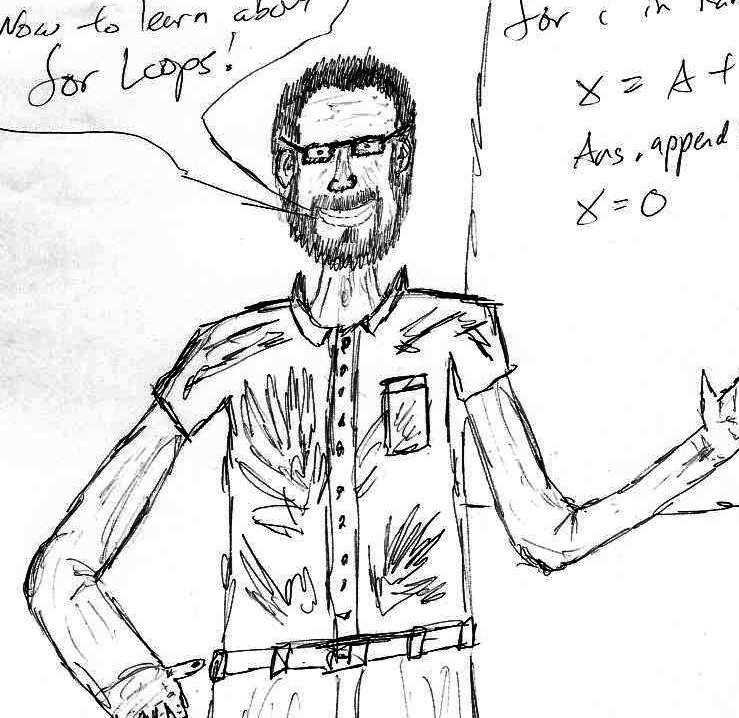 Now to learn about
for Loops!
for c in ran
x = A +
Ans.append
x = 0